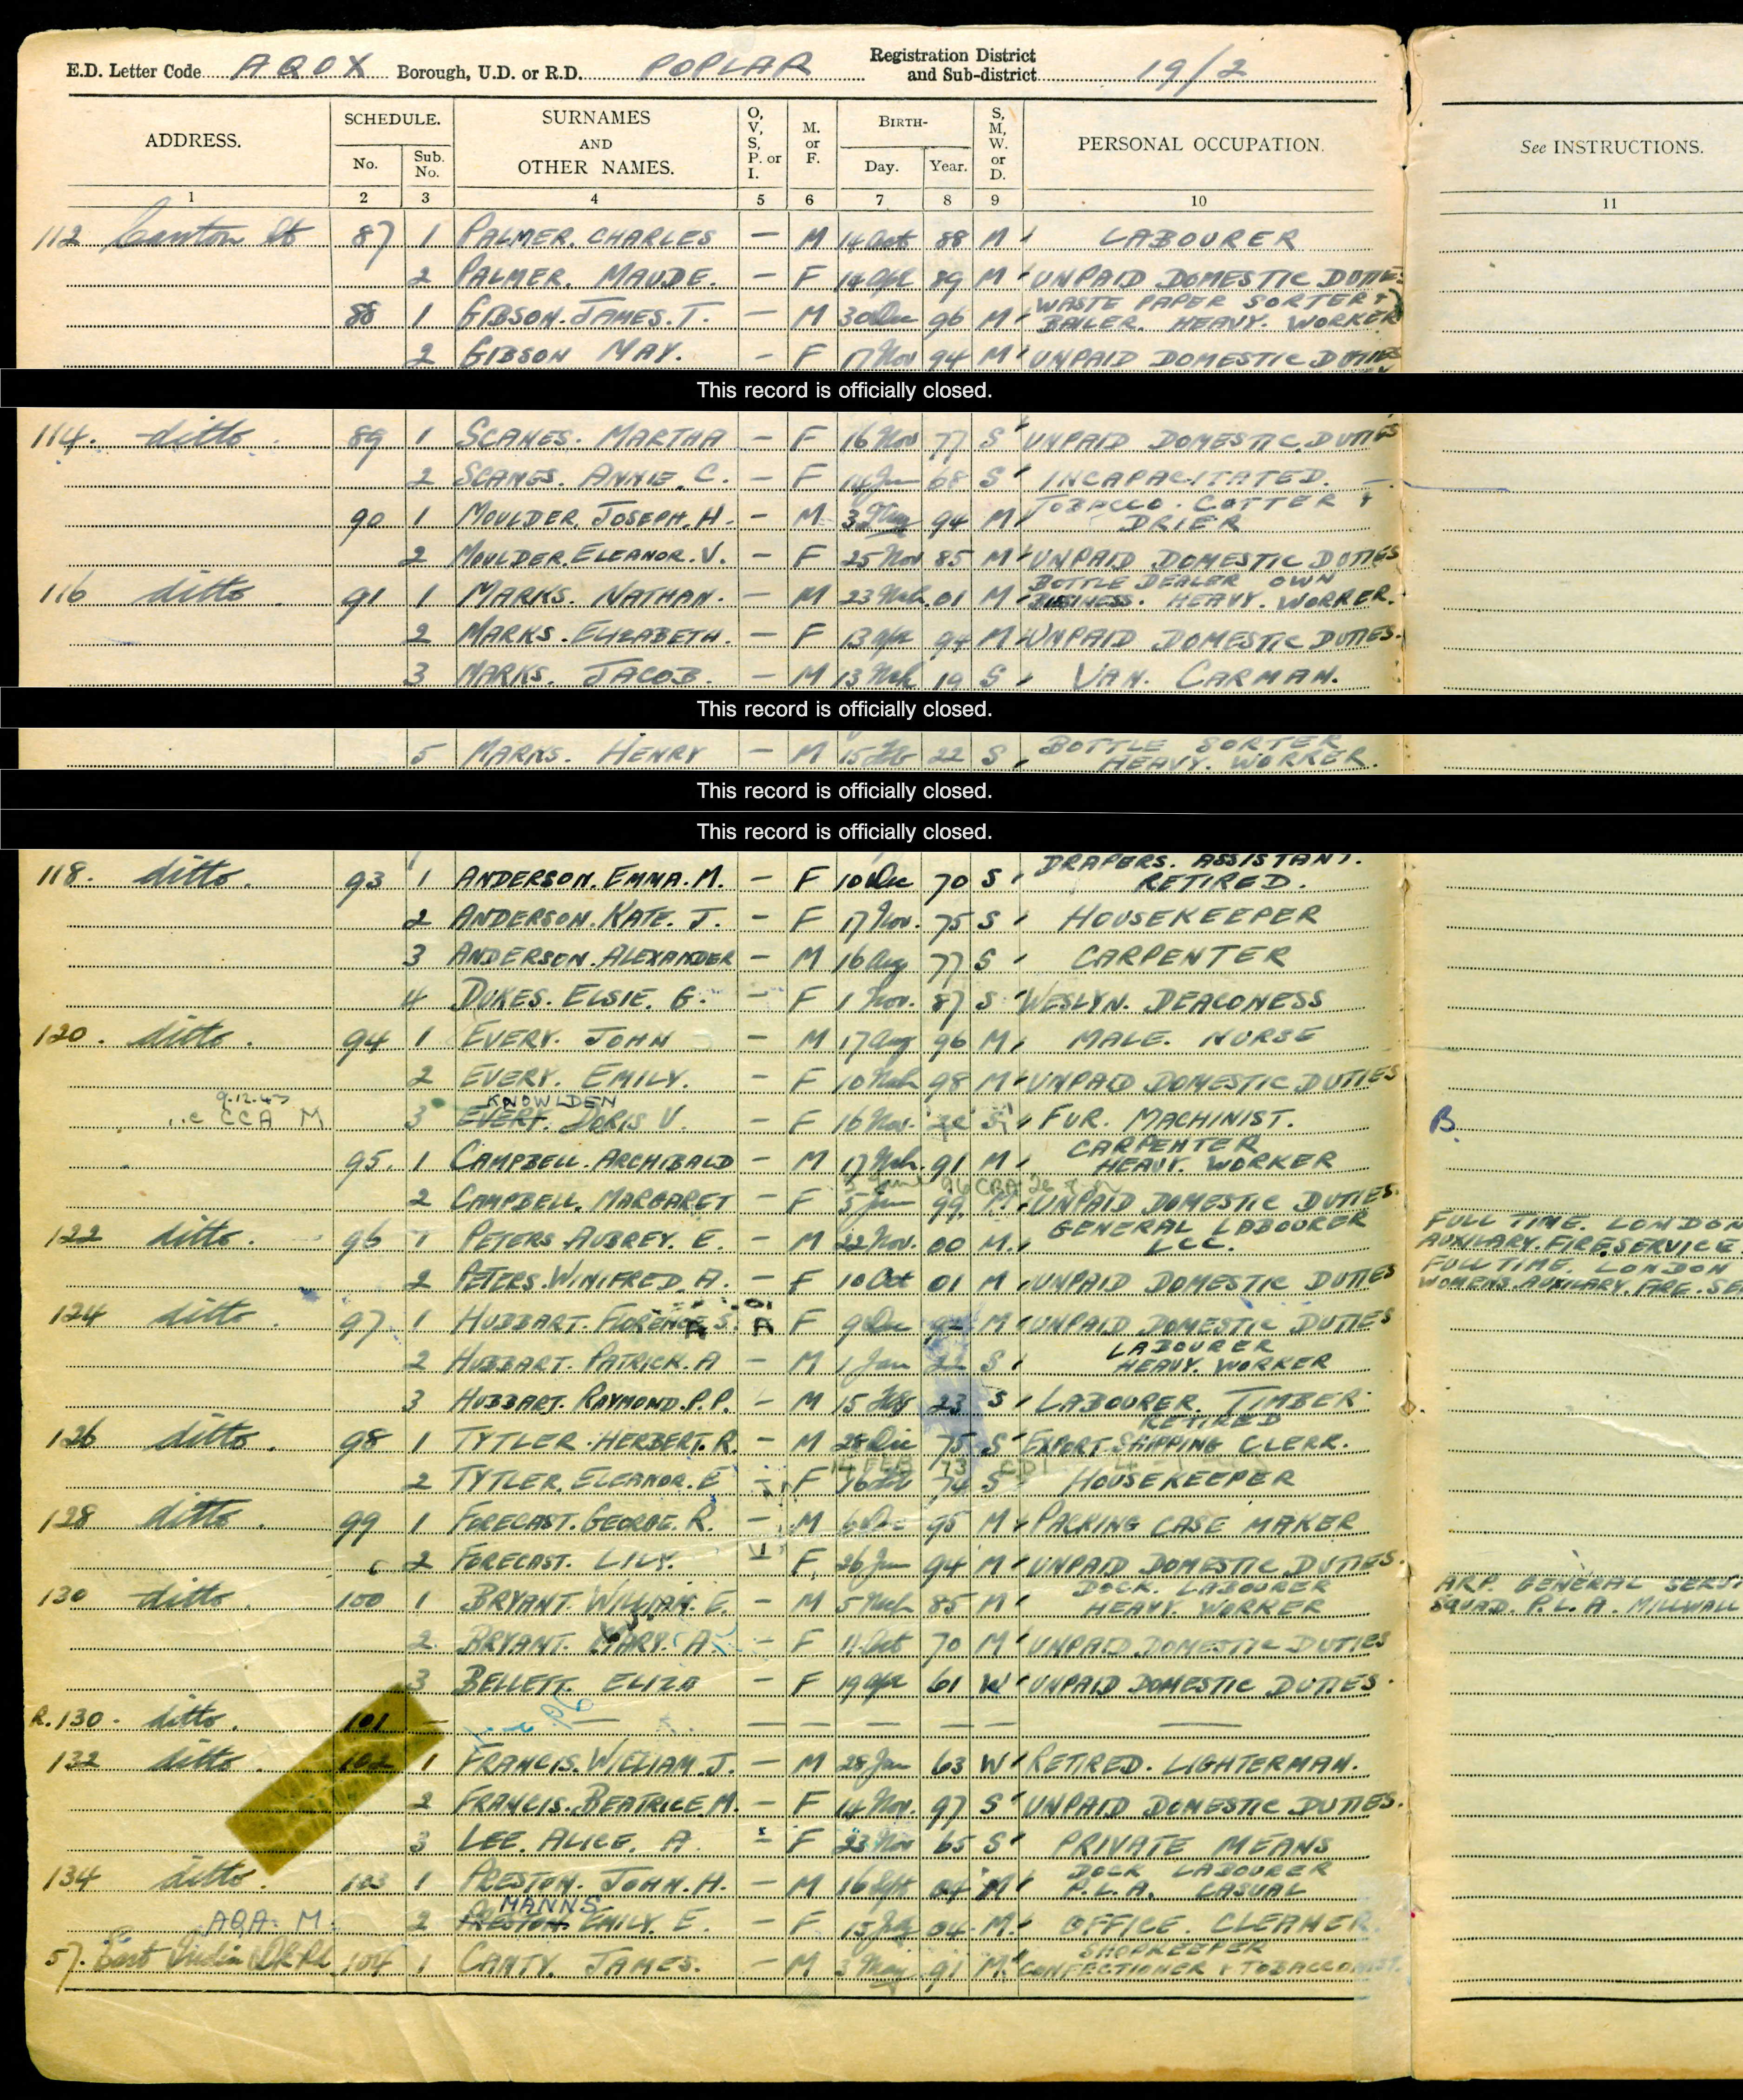 E.D. Letter Code AQOX Borough, U.D. or R.D. POPLAR Registration District and Sub-district 19/2
ADDRESS. SCHEDULE. No. Sub. No. SURNAMES AND OTHER NAMES. O, V, S, P. or I. M. or F. BIRTH- Day. Year. S, M, W. or D. PERSONAL OCCUPATION. See INSTRUCTIONS.
1 2 3 4 5 6 7 8 9 10 11
112 Canton St 87 1 PALMER. CHARLES — M 14 Oct 88 M LABOURER
2 PALMER. MAUDE. — F 14 Apl 89 M UNPAID DOMESTIC DUTIES
88 1 GIBSON. JAMES. T. — M 30 Dec 96 M WASTE PAPER SORTER + BALER. HEAVY. WORKER
2 GIBSON MAY. — F 17 Nov 94 M UNPAID DOMESTIC DUTIES
This record is officially closed.
114. ditto. 89 1 SCANES. MARTHA — F 16 Nov 77 S UNPAID DOMESTIC DUTIES
2 SCANES. ANNIE. C. — F 14 Jun 68 S INCAPACITATED. —
90 1 MOULDER. JOSEPH. H. — M 3 94 M TOBACCO. CUTTER + DRIER
2 MOULDER. ELEANOR. V. — F 25 Nov 85 M UNPAID DOMESTIC DUTIES
116 ditto 91 1 MARKS. NATHAN. — M 23 Mch 01 M BOTTLE DEALER OWN BUSINESS. HEAVY. WORKER.
2 MARKS. ELIZABETH. — F 13 Apr 94 M UNPAID DOMESTIC DUTIES.
3 MARKS. JACOB. — M 13 Mch 19 S VAN. CARMAN.
This record is officially closed.
5 MARKS. HENRY — M 15 Feb 22 S BOTTLE SORTER HEAVY. WORKER.
This record is officially closed.
This record is officially closed.
118. ditto. 93 1 ANDERSON. EMMA. M. — F 10 Dec 70 S DRAPERS. ASSISTANT. RETIRED.
2 ANDERSON. KATE. J. — F 17 Nov. 75 S HOUSEKEEPER
3 ANDERSON. ALEXANDER — M 16 Aug 77 S CARPENTER
4 DUKES. ELSIE. G. — F 1 Nov. 87 S WESLYN. DEACONESS
120. ditto. 94 1 EVERY. JOHN — M 17 Aug 96 M MALE. NURSE
2 EVERY. EMILY. — F 10 Mch 98 M UNPAID DOMESTIC DUTIES
9.12.43 KNOWLDEN
CCA M 3 EVERY. DORIS V. — F 16 Nov. S FUR. MACHINIST. B.
95. 1 CAMPBELL. ARCHIBALD — M 17 Mch. 91 M CARPENTER HEAVY. WORKER
June 96 CBA
2 CAMPBELL. MARGARET — F 5 Jun 99. M UNPAID DOMESTIC DUTIES.
122 ditto. 96 1 PETERS. AUBREY. E. — M 22 Nov. 00 M. GENERAL LABOURER LCC. FULL TIME. LONDON AUXILARY. FIRE SERVICE
2 PETERS. WINIFRED. A. — F 10 Oct 01 M UNPAID DOMESTIC DUTIES FULL TIME. LONDON WOMENS. AUXILARY. FIRE. SE
124 ditto. 97 1 HUBBART. FLORENCE S. A F 9 Dec M UNPAID DOMESTIC DUTIES
2 HUBBART. PATRICK. A — M 1 Jan S LABOURER HEAVY. WORKER
3 HUBBART. RAYMOND. P.P. — M 15 Feb 23 S LABOURER. TIMBER
126 ditto. 98 1 TYTLER. HERBERT. R. — M 28 Dec 75 S RETIRED EXPORT. SHIPPING CLERK.
14 FEB 73 CDI
2 TYTLER. ELEANOR. E — F 16 74 S HOUSEKEEPER
128 ditto. 99 1 FORECAST. GEORGE. R. — M 6 Dec 95 M PACKING CASE MAKER
2 FORECAST. LILY. F 26 Jun 94 M UNPAID DOMESTIC DUTIES.
130 ditto. 100 1 BRYANT. WILLIAM. E. — M 5 Mch 85 M DOCK. LABOURER HEAVY. WORKER ARP. GENERAL SERVI SQUAD. P.L.A. MILLWALL
2 BRYANT. MARY. A. — F 11 Oct 70 M UNPAID DOMESTIC DUTIES
3 BELLETT. ELIZA — F 19 Apr 61 W UNPAID DOMESTIC DUTIES.
R. 130. ditto. 101 — — — — — — — —
132 ditto 102 1 FRANCIS. WILLIAM. J. — M 28 Jan 63 W RETIRED. LIGHTERMAN.
2 FRANCIS. BEATRICE M. — F 14 Nov. 97 S UNPAID DOMESTIC DUTIES.
3 LEE. ALICE. A. — F 23 Nov 65 S PRIVATE MEANS
134 ditto. 103 1 PRESTON. JOHN. H. — M 16 Sept 04 M DOCK LABOURER P.L.A. CASUAL
MANNS
AQA. M. 2 PRESTON EMILY. E. — F 15 July 04 M. OFFICE. CLEANER.
57. East India Dk Rd 104 1 CANTY. JAMES. — M 3 May 91 M. SHOPKEEPER CONFECTIONER + TOBACCONIST.